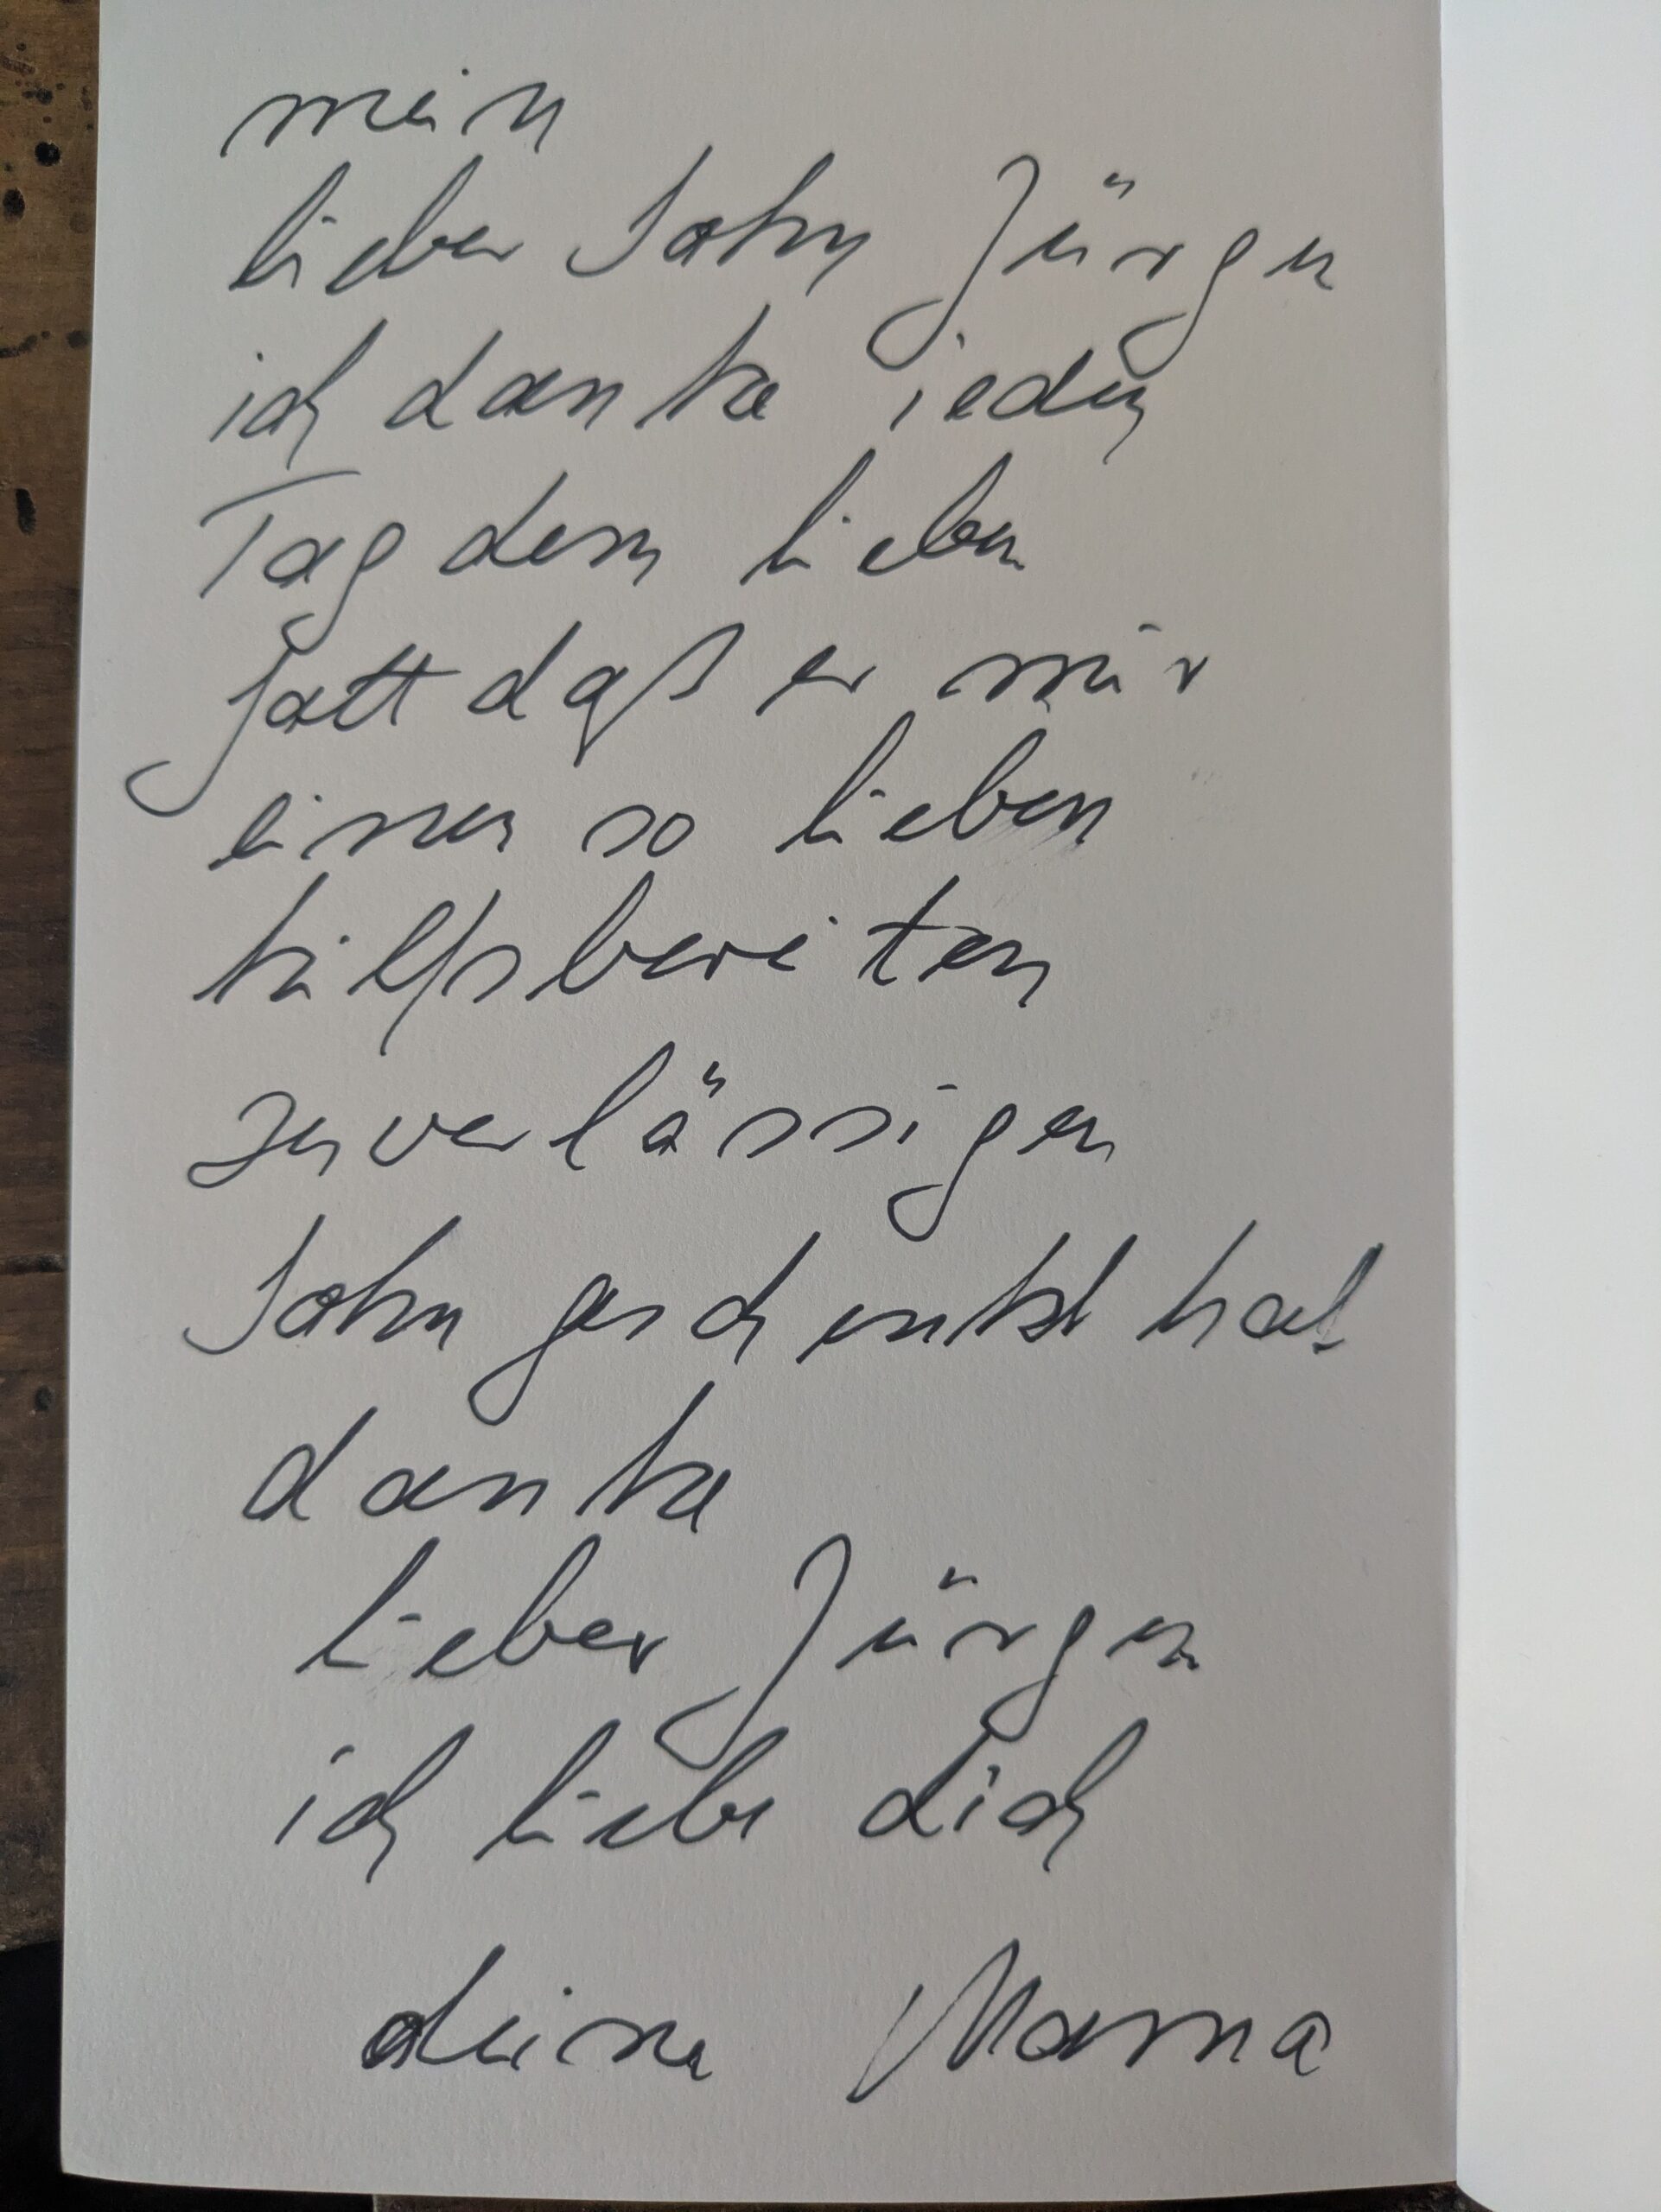 mein
lieber Sohn Jürgen
ich danke jeden
Tag dem lieben
Gott daß er mir
einen so lieben
hilfsbereiten
zuverlässigen
Sohn geschenkt hat
danke
lieber Jürgen
ich liebe dich
deine Mama